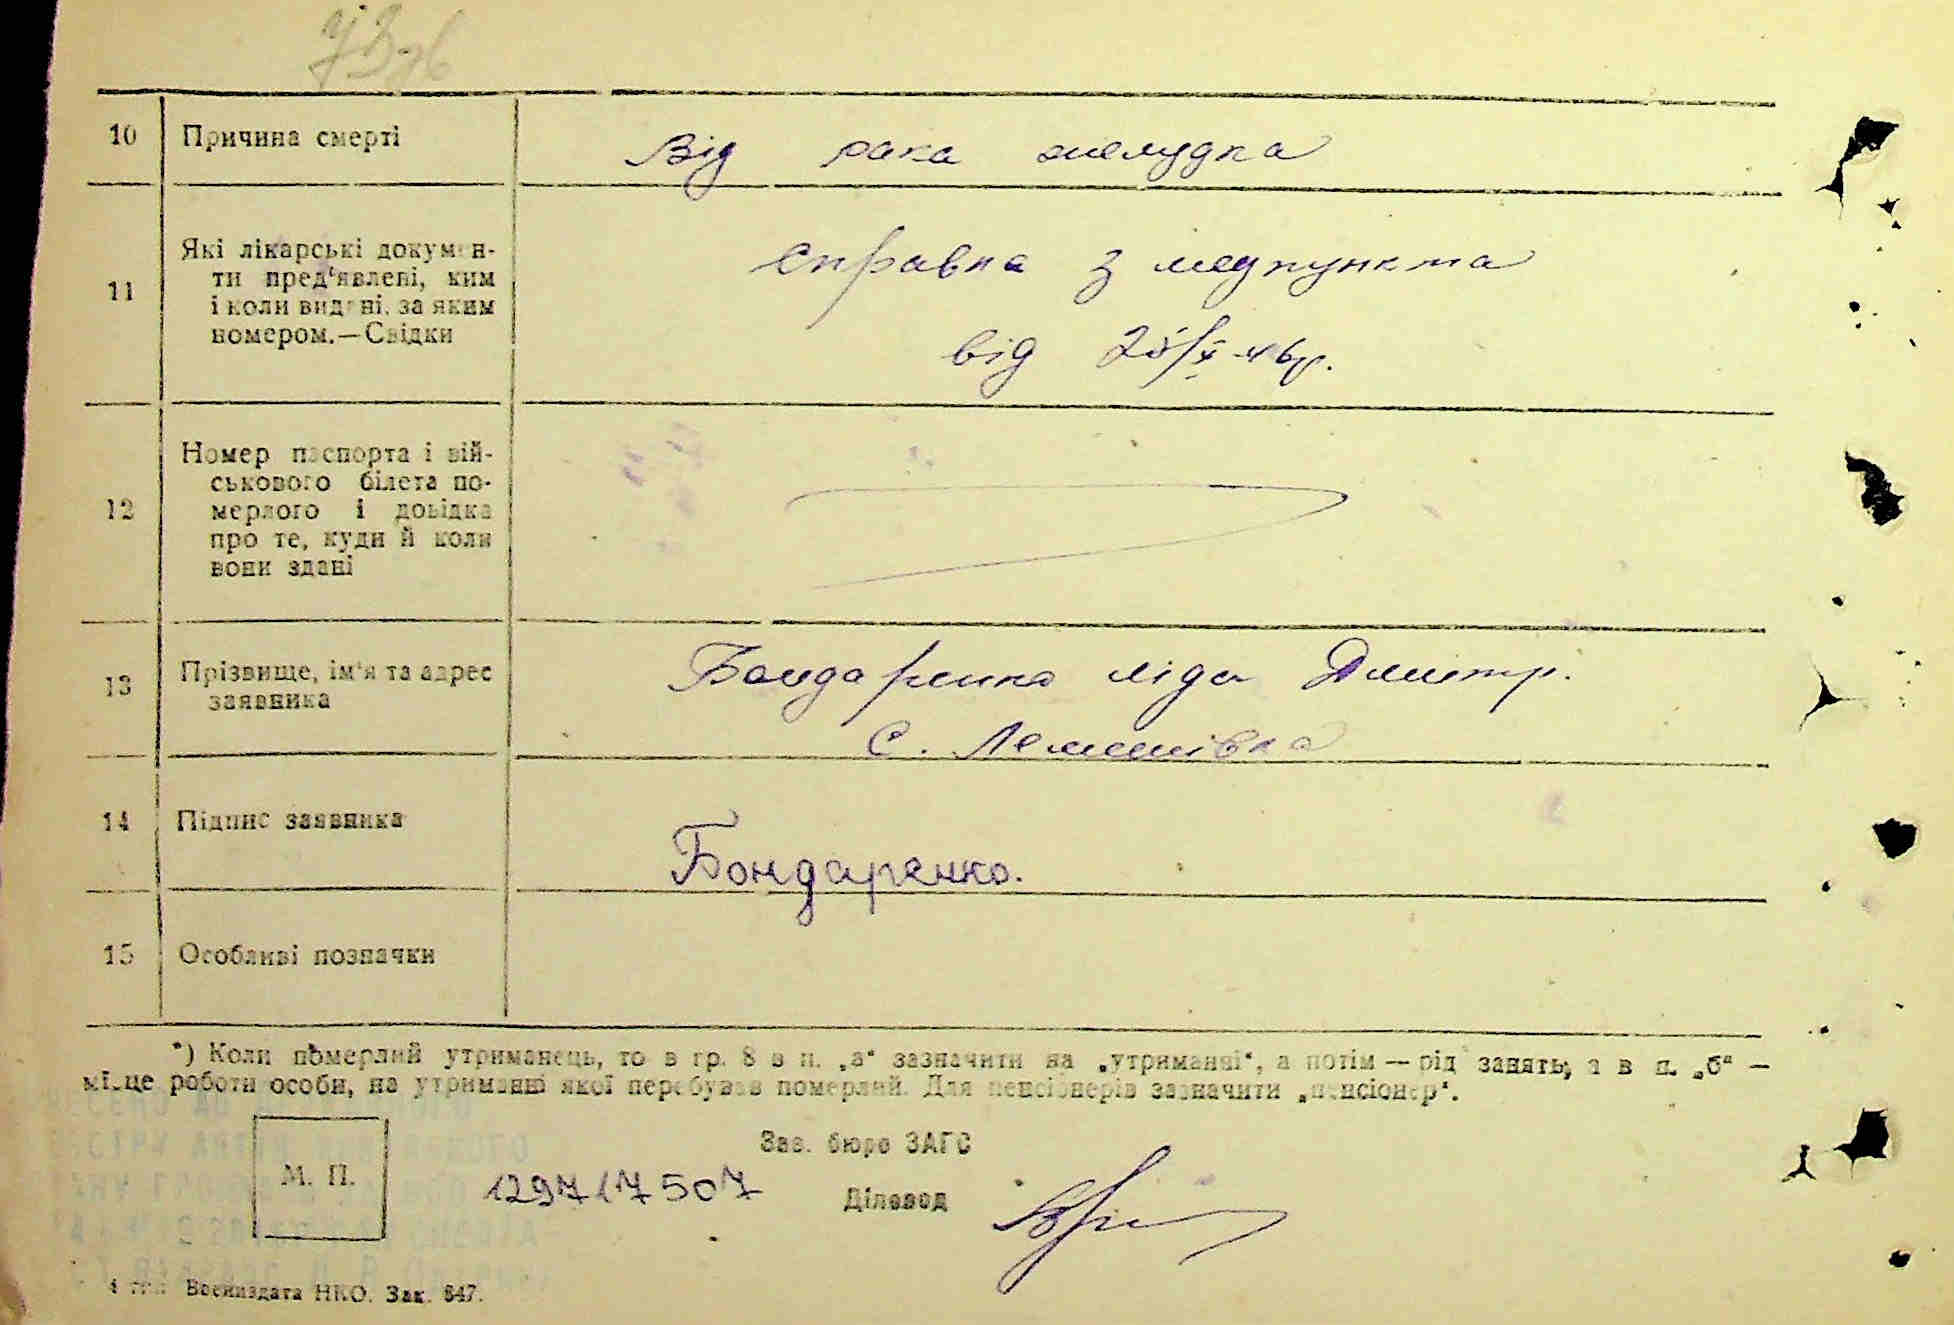 10 Причина смерті
Від рака желудка
11 Які лікарські докумен-
ти пред‘явлені, ким
і коли видані, за яким
номером.—Свідки
справка з медпункта
від
12 Номер паспорта і вій-
ськового білета по-
мерлого і довідка
про те, куди й коли
вони здані
13 Прізвище, ім‘я та адрес
заявника
Бондаренко Ліда Дмитр.
с. Лемешівка
14 Підпис заявника
Бондаренко.
15 Особливі позначки
*) Коли померлий утриманець, то в гр. 8 в п. „а“ зазначити на „утриманні“, а потім — рід занять, а в п. „б“ —
місце роботи особи, на утриманні якої перебував померлий. Для пенсіонерів зазначити „пенсіонер“.
Зав. бюро ЗАГС
М. П.
129717507
Діловод
Воениздата НКО. Зак. 647.